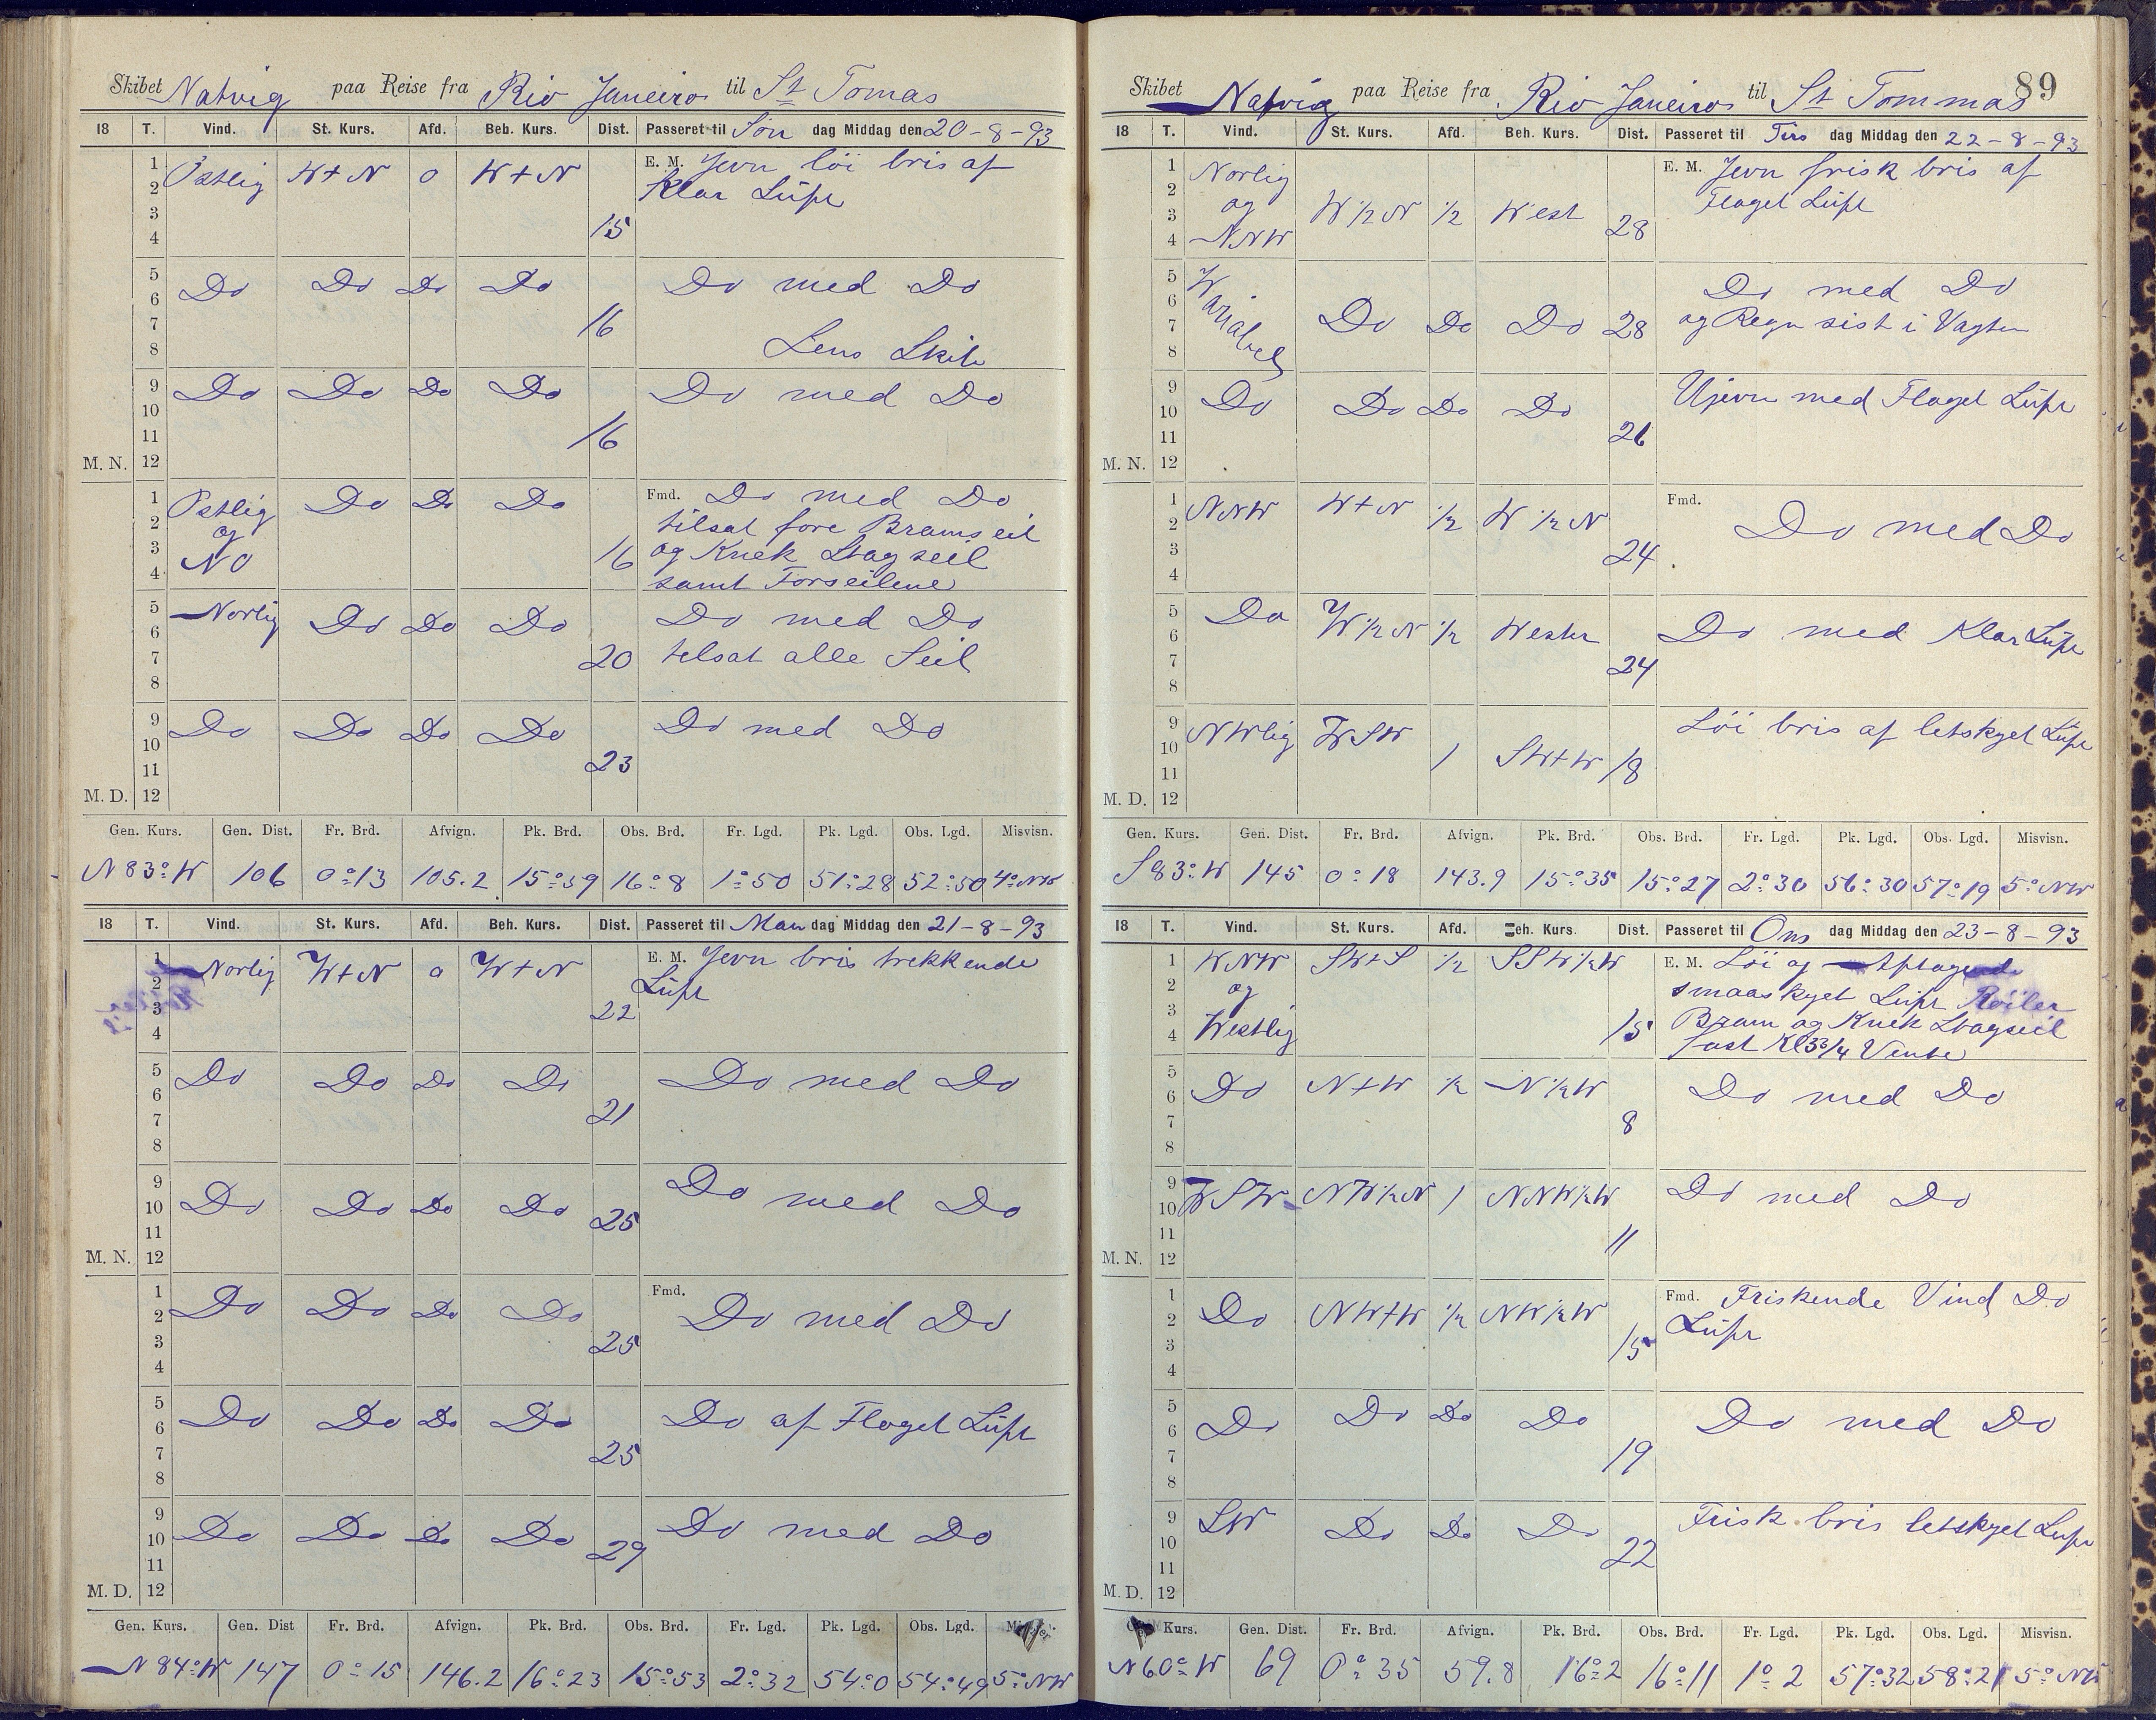 Skibet Natvig paa Reise fra Rio Janeiro til St Tomas
18 T. Vind. St. Kurs. Afd. Beh. Kurs. Dist. Passeret til Søn dag Middag den 20-8-93
1 2 3 4 Østlig W+N 0 W+N 15 E. M. Jevn löi bris af
Klar Luft
5 6 7 8 Do Do Do Do 16 Do med Do
Lens Skib
9 10 11 12 Do Do Do Do 16 Do med Do
M. N.
1 2 3 4 Østlig og NO Do Do Do 16 Fmd. Do med Do
tilsat fore Bramseil
og Knek Stagseil
samt Forseilene
5 6 7 8 Norlig Do Do Do 20 Do med Do
tilsat alle Seil
9 10 11 12 Do Do Do Do 23 Do med Do
M. D.
Gen. Kurs. Gen. Dist. Fr. Brd. Afvign. Pk. Brd. Obs. Brd. Fr. Lgd. Pk. Lgd. Obs. Lgd. Misvisn.
N 83° W 106 0°13 105.2 15°59 16°8 1°50 51°28 52°50 4° NW
18 T. Vind. St. Kurs. Afd. Beh. Kurs. Dist. Passeret til Man dag Middag den 21-8-93
1 2 3 4 Norlig W+N 0 W+N 22 E. M. Jevn bris trekkende
Luft
5 6 7 8 Do Do Do Do 21 Do med Do
9 10 11 12 Do Do Do Do 25 Do med Do
M. N.
1 2 3 4 Do Do Do Do 25 Fmd. Do med Do
5 6 7 8 Do Do Do Do 25 Do af Flaget Luft
9 10 11 12 Do Do Do Do 29 Do med Do
M. D.
Gen. Kurs. Gen. Dist Fr. Brd. Afvign. Pk. Brd. Obs. Brd. Fr. Lgd. Pk. Lgd. Obs. Lgd.
N 84° W 147 0°15 146.2 16°23 15°53 2°32 54°0 54°49 5° NW
89
Skibet Natvig paa Reise fra Rio Janeiro til St Tommas
18 T. Vind. St. Kurs. Afd. Beh. Kurs. Dist. Passeret til Tirs dag Middag den 22-8-93
1 2 3 4 Norlig og NNW W 1/2 N 1/2 West 28 E. M. Jevn frisk bris af
Flaget Luft
5 6 7 8 Wariabel Do Do Do 28 Do med Do
og Regn sist i Vagten
9 10 11 12 Do Do Do Do 26 Ujevn med Flaget Luft
M. N.
1 2 3 4 NNW W+N 1/2 W 1/2 N 24 Fmd. Do med Do
5 6 7 8 Do W 1/2 N 1/2 West 24 Do med Klar Luft
9 10 11 12 NWlig WSW 1 SW+W 18 Löi bris af letskyet Luft
M. D.
Gen. Kurs. Gen. Dist. Fr. Brd. Afvign. Pk. Brd. Obs. Brd. Fr. Lgd. Pk. Lgd. Obs. Lgd. Misvisn.
S 83° W 145 0°18 143.9 15°35 15°27 2°30 56°30 57°19 5° NW
18 T. Vind. St. Kurs. Afd. Beh. Kurs. Dist. Passeret til Ons dag Middag den 23-8-93
1 2 3 4 WNW og Westlig SW+S 1/2 SSW 1/2 W 15 E. M. Löi og Aftagende
smaaskyet Luft Röiler
Bram og Knek Stagseil
fast Kl 3 3/4 Vente
5 6 7 8 Do N+W 1/2 N 1/2 W 8 Do med Do
9 10 11 12 WSW NW 1/2 N 1 NNW 1/2 W 11 Do med Do
M. N.
1 2 3 4 Do NW+W 1/2 NW 1/2 W 15 Fmd. Friskende Vind Do
Luft
5 6 7 8 Do Do Do Do 19 Do med Do
9 10 11 12 SW Do Do Do 22 Frisk bris letskyet Luft
M. D.
Kurs. Gen. Dist. Fr. Brd. Afvign. Pk. Brd. Obs. Brd. Fr. Lgd. Pk. Lgd. Obs. Lgd. Misvisn.
N 60° W 69 0°35 59.8 16°2 16°11 1°2 57°32 58°21 5° NW